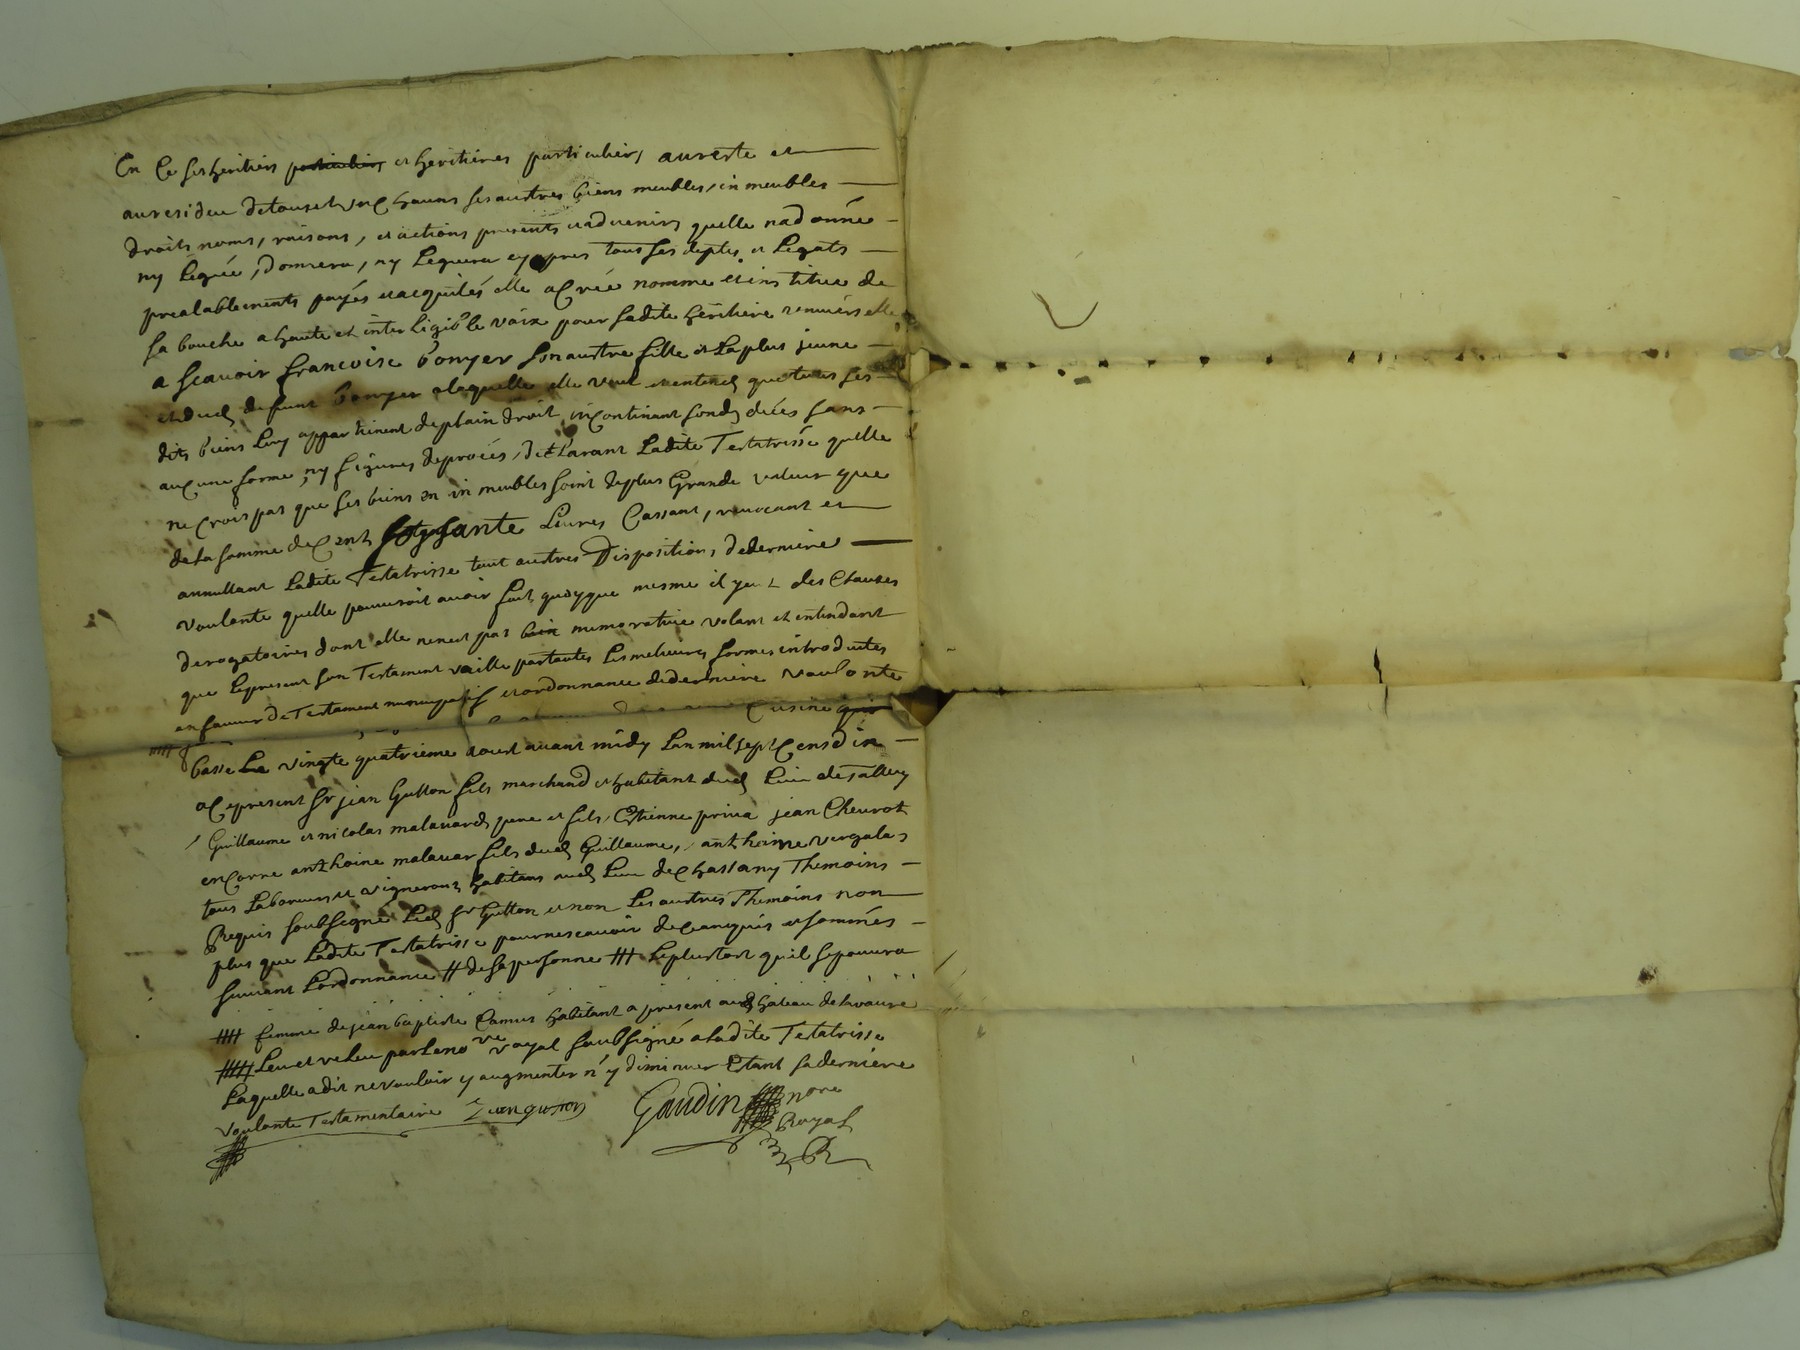 En Ce ses heritiers particuliers et heritieres particuliers, au reste et
au residu de tous et un Chauns ses autres biens meubles, in meubles
droits noms, raisons, et actions presents et advenirs quelle nad onnée
ny Leguée, donnera, ny Leguera cy apres tous ses deptes et Legats
prealablements payés et acquités elle a Créé nomme et ins titué de
sa bouche a haute et inter Ligible voix pour sadite heritiere universelle
a scavoir francoise bonyer son autre fille et La plus jeune
et dud defunt bonyer a laquelle elle veut et entend que tous ses
dits biens Luy appartienent de plain droit in Continant son deces sans
auCune forme, ny figures de proces, de Clarant Ladite Testatrisse quelle
ne Crois pas que ses biens en in meubles soint de plus Grande valeur que
de La somme de Cent soixsante Livres Cassant, revocant et
annullant Ladite Testatrisse tout autres Disposition, de derniere
voulonte quelle pouuroit avoir fait quoyque mesme il y eut des Clauses
derogatoires dont elle nenest pas bien memorative volant et entendant
que Le present son Testament vaille par toutes Les melieures formes introduites
en faveur de Testament nuncupatif et ordonnance de derniere voulonte
Cuisine
basse Le vingte quatrieme aout avant midy Lan mil sept Cens dix
a Ce present Sr jean Gutton fils marchand et habitant dud Lieu de Talleuy
Guillaume et nicolas malavard pere et fils, Etienne priva jean Cheurot
en Corre anthoine malavar fils dud Guillaume, anthoine vergala
tous Laboureurs et vignerons habitans aud Lieu de Chassany Themoins
Requis soubsigné Led Sr Gutton et non Les autres Themoins non
plus que Ladite Testatrisse pour ne scavoir de Ce anquis et sommés
suivant Lordonnance # de sa personne ### Le plustost quil se pouura
#### femme de jean baptiste Camus habitant a present aud Chateau de
##### Leu et releu par Le nore royal soubsigné a ladite Testatrisse
Laquelle a dit ne vouloir y augmenter n'y diminuer Etant sa derniere
voulonte Testamentaire
Gaudin nore
Royal